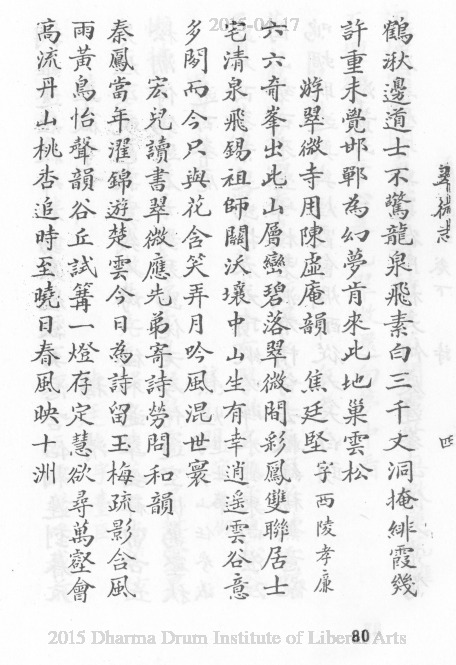 2015-04-17
鶴湫邊道士不驚龍泉飛素白三千丈洞掩緋霞幾
許重未覺邯鄲為幻夢肯來此地巢雲松
游翠微寺用陳虛庵韻 焦廷堅 字西陵孝廉
六六奇峯出此山層巒碧落翠微間彩鳳雙聯居士
宅清泉飛錫祖師關沃壤中山生有幸逍遥雲谷意
多閑而今只與花含笑弄月吟風混世寰
宏兒讀書翠微應先弟寄詩勞問和韻
秦鳳當年濯錦遊楚雲今日為詩留玉梅疏影含風
雨黃鳥怡聲韻谷丘試篝一燈存定慧欲尋萬壑會
高流丹山桃杏追時至曉日春風映十洲
四
80
2015 Dharma Drum Institute of Liberal Arts